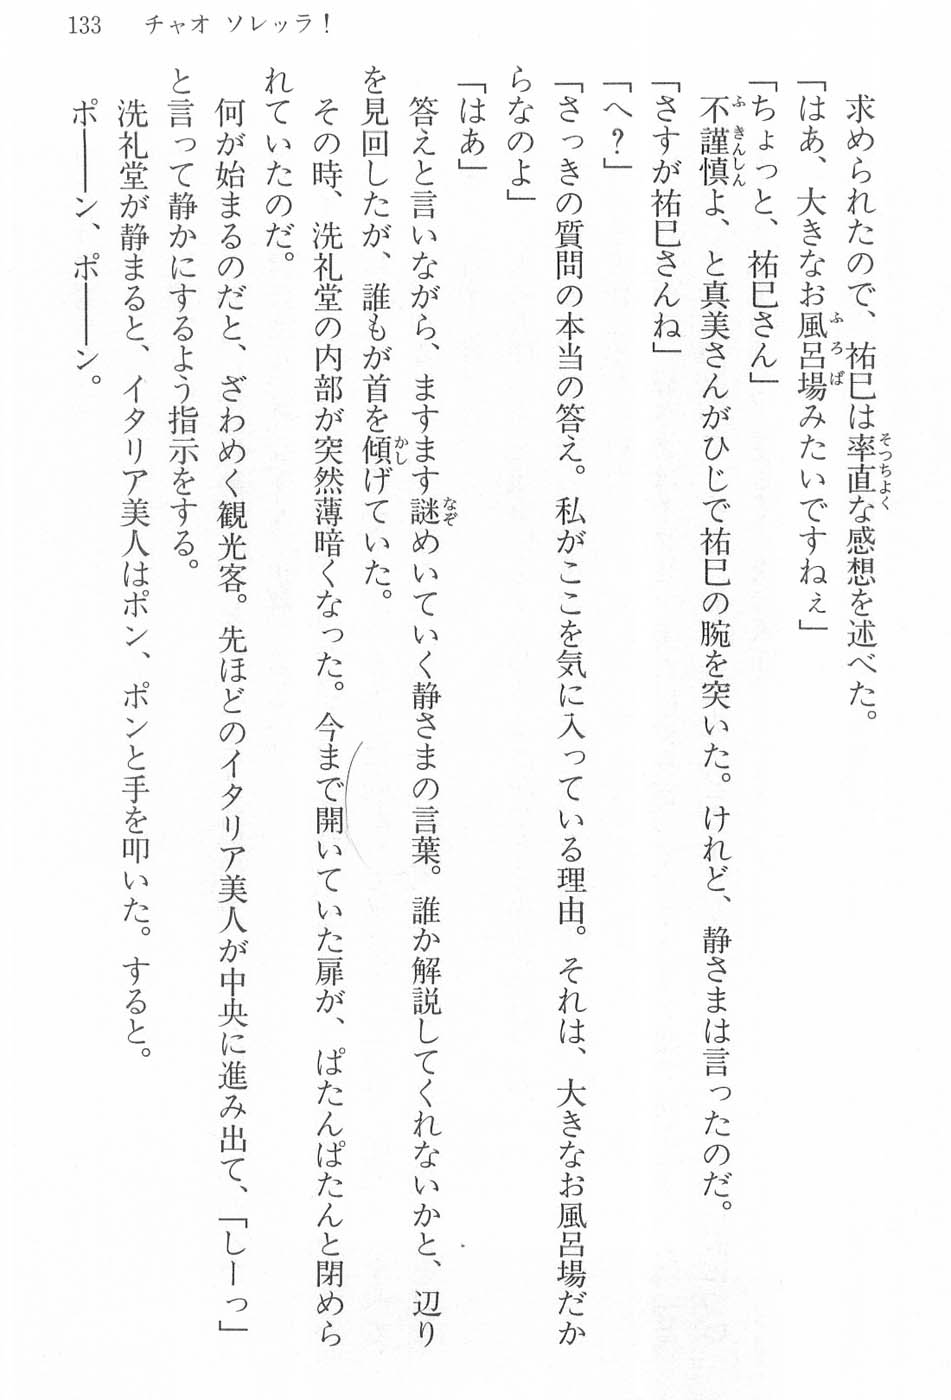 133　チャオ ソレッラ！
　求められたので、祐巳は率直な感想を述べた。
「はあ、大きなお風呂場みたいですねぇ」
「ちょっと、祐巳さん」
　不謹慎よ、と真美さんがひじで祐巳の腕を突いた。けれど、静さまは言ったのだ。
「さすが祐巳さんね」
「へ？」
「さっきの質問の本当の答え。私がここを気に入っている理由。それは、大きなお風呂場だか
らなのよ」
「はあ」
　答えと言いながら、ますます謎めいていく静さまの言葉。誰か解説してくれないかと、辺り
を見回したが、誰もが首を傾げていた。
　その時、洗礼堂の内部が突然薄暗くなった。今まで開いていた扉が、ぱたんぱたんと閉めら
れていたのだ。
　何が始まるのだと、ざわめく観光客。先ほどのイタリア美人が中央に進み出て、「しーっ」
と言って静かにするよう指示をする。
　洗礼堂が静まると、イタリア美人はポン、ポンと手を叩いた。すると。
　ポ――ン、ポ――ン。